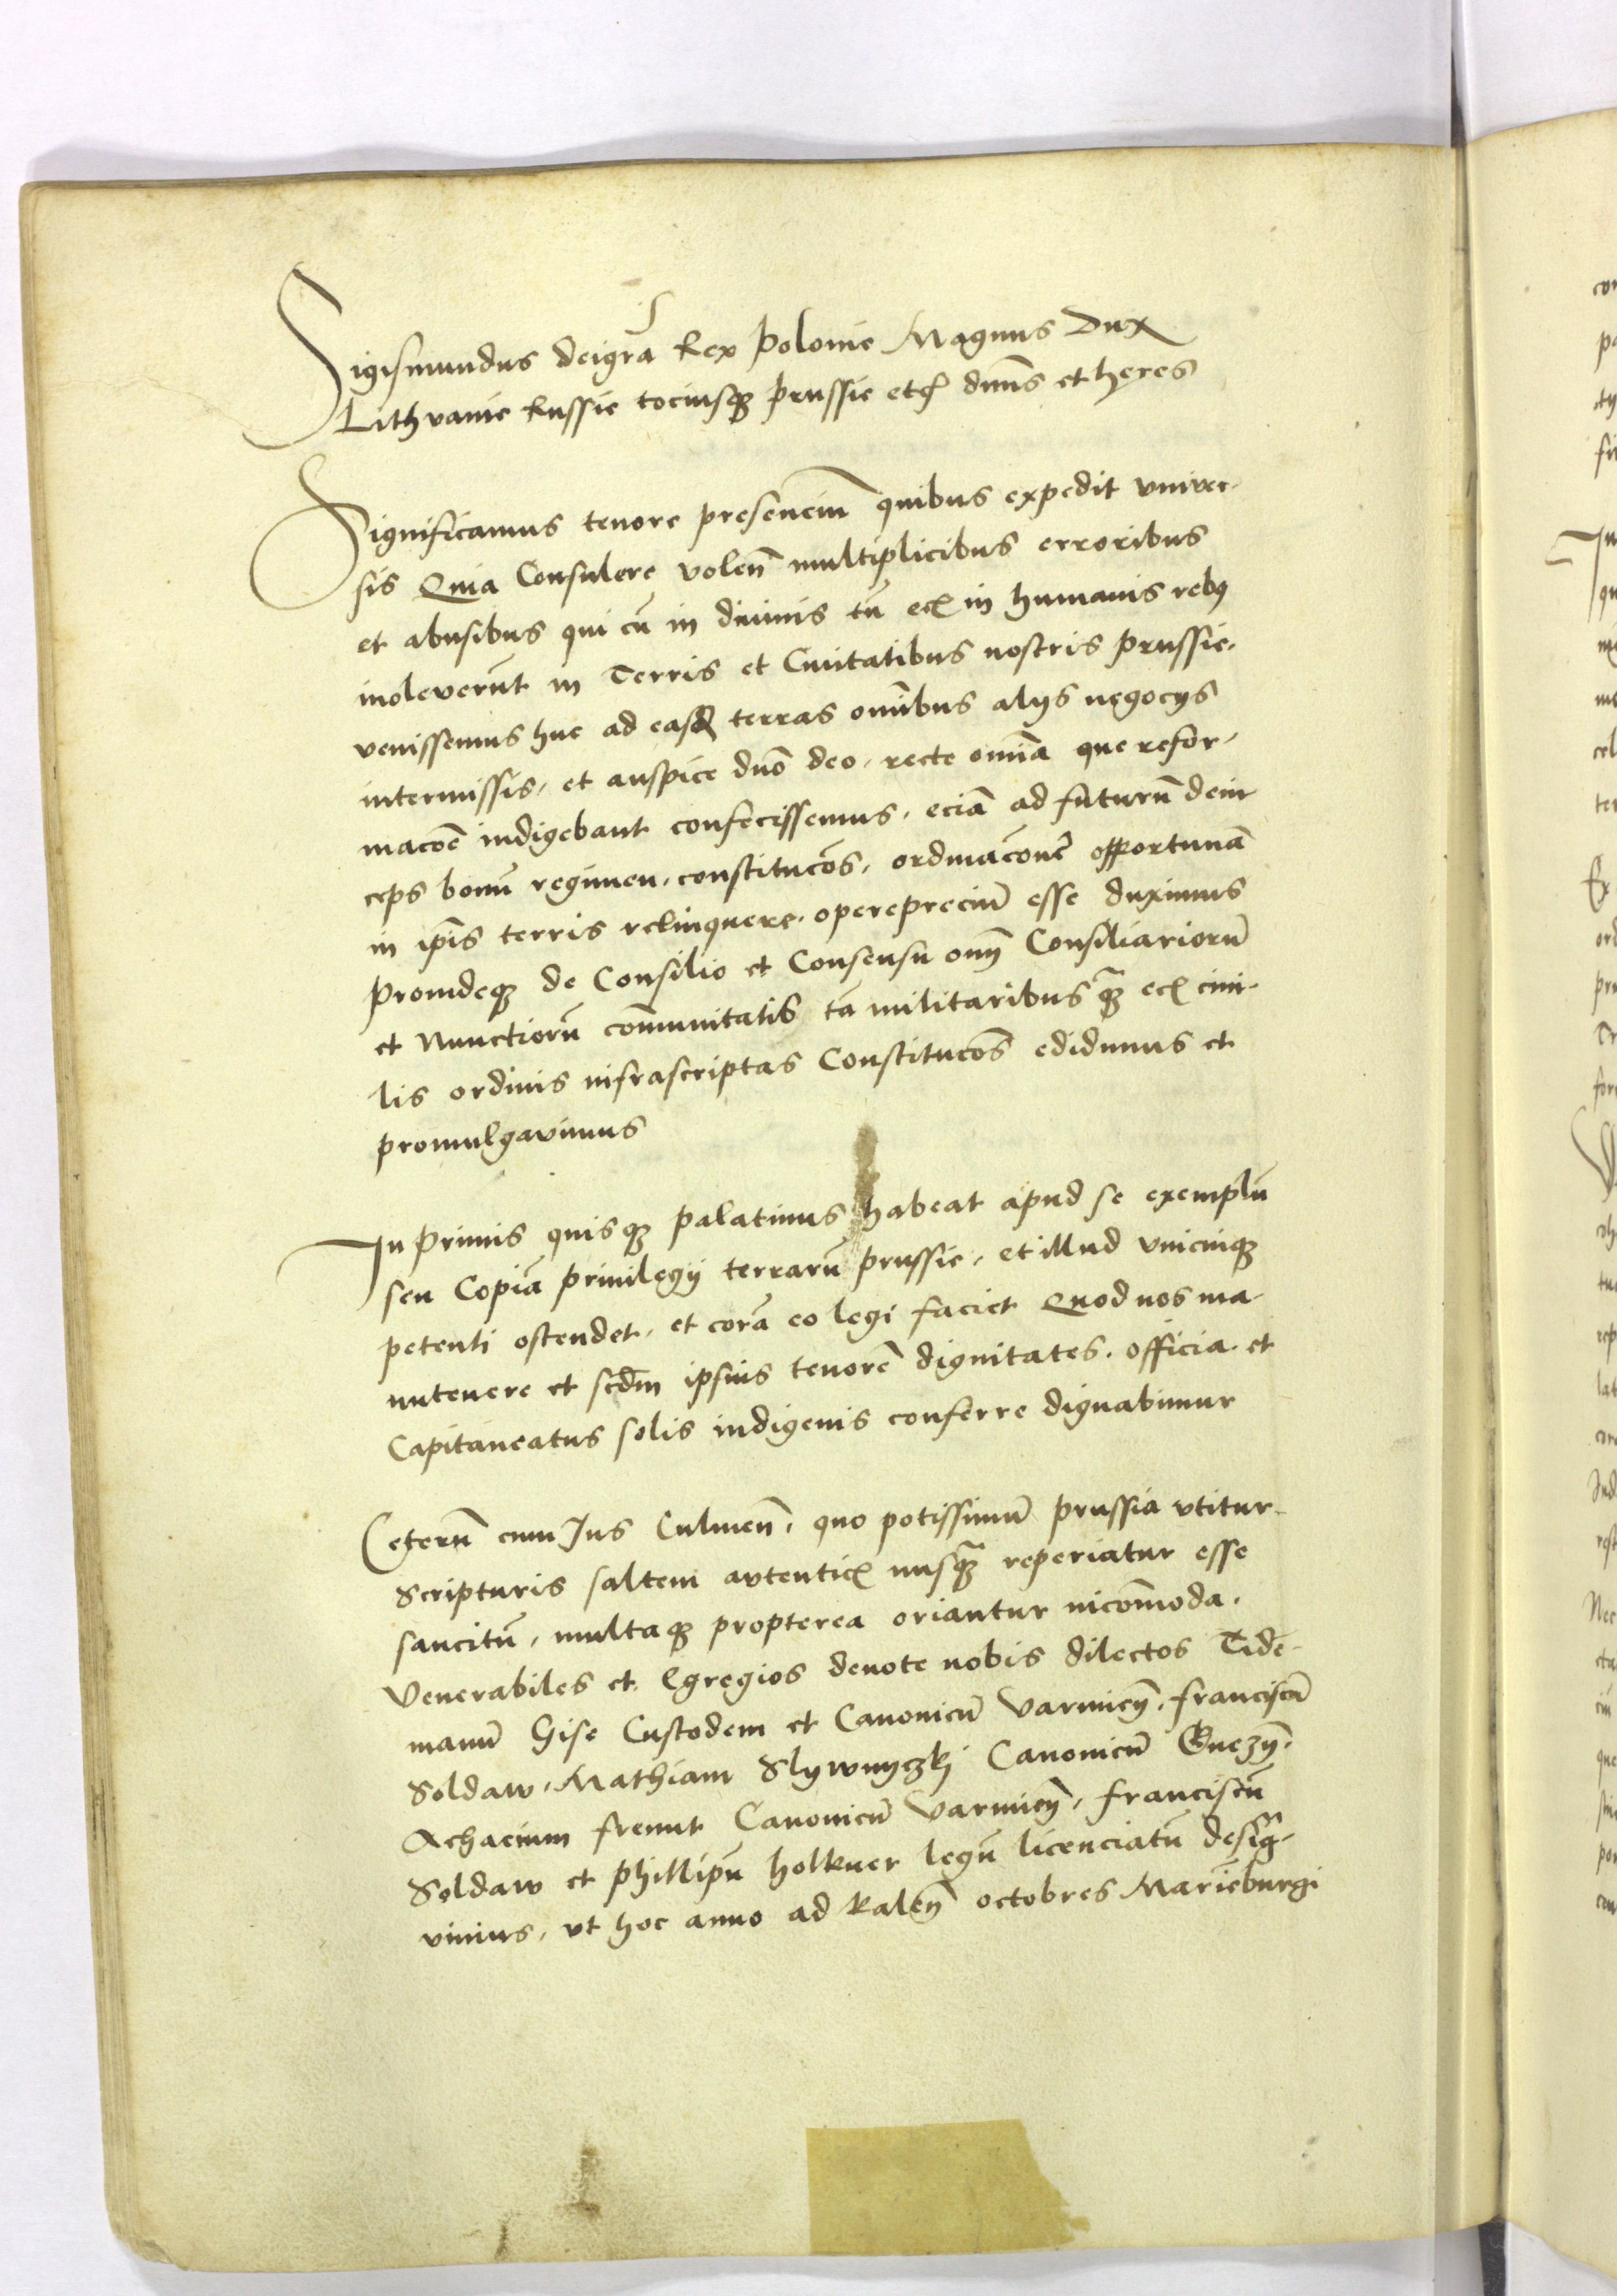 Sigismundus deigrã Rex Polonie Magnus Dux
Lithvanie Russie tociusqz prussie etc dnñs et heres
Significamus tenore presenciũ quibus expedit univer-
sis Quia Consulere volen̄ multiplicibus erroribus
et abusibus qui cũ in diuinis tũ ec̃ in humanis rebꝯ
inoleverũt in Terris et Ciuitatibus nostris prussie.
venissemus huc ad easdẽ terras omĩbus alijs negocys
intermissis, et auspice dnõ deo, recte omĩa que refor-
macõe indigebant confecissemus, eciã ad futurũ dein-
ceps bonũ regimen, constitucõs, ordinacõnẽ opportunã
in ip̃is terris relinquere. operepreciũ esse duximus
Proindeqz de Consilio et Consensu om̃ Consiliariorũ
et Nunctiorũ com̃unitatis tã militaribus qz̃ ec̃ ciui-
lis ordinis infrascriptas Constitucõs edidimus et
promulgavimus
In Primis quisqz palatinus habeat apud se exemplũ
seu Copiã priuilegij terrarũ prussie, et illud vnicuiqz
petenti ostendet, et corã eo legi faciet Quod nos ma-
nutenere et scdm̃ ipsius tenorẽ dignitates. officia. et
Capitaneatus solis indigenis conferre dignabimur
Ceterũ cum Jus Culmen̄. quo potissimũ prussia vtitur.
Scripturis saltem autentic̃ nusqz̃ reperiatur esse
sancitũ, multaqz propterea oriantur incõmoda.
Venerabiles et Egregios deuote nobis dilectos Tide-
manũ Gise Custodem et Canonicũ Varmien̄. franciscũ
Soldaw. Mathiam Slywnyczkj Canonicũ Gnezn̄.
Achacium freunt Canonicũ Varmien̄, franciscũ
Soldaw et Phillipũ holkner legũ licenciatũ desig̃-
vimus, vt hoc anno ad Kalen̄ octobres Marieburgi